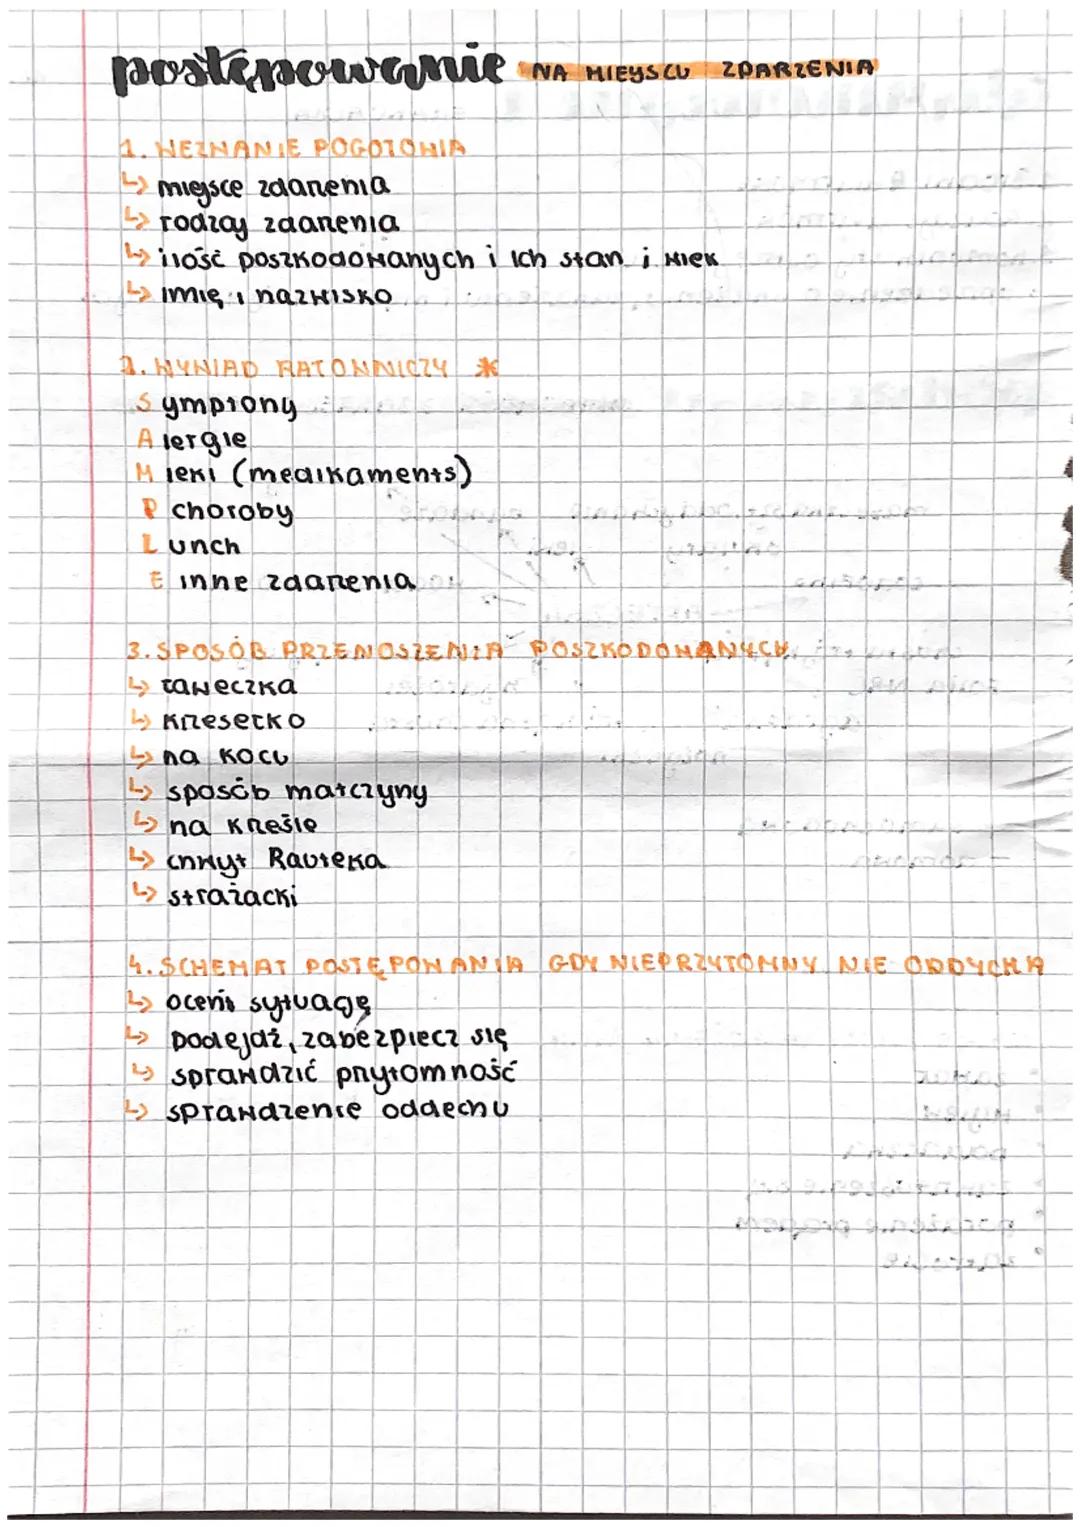 postępowanie NA MIEJSCU ZDARZENIA
1. WEZWANIE POGOTOWIA
↳ miejsce zdarzenia
↳ rodzaj zdarzenia
↳ ilość poszkodowanych i ich stan i wiek
↳ imię i nazwisko
2. WYWIAD RATOWNICZY *
S ymptomy
A lergie
M leki (medikaments)
P choroby
L unch
E inne zdarzenia
3. SPOSÓB PRZENOSZENIA POSZKODOWANYCH
↳ ławeczka
↳ krzesełko
↳ na kocu
↳ sposób matczyny
↳ na krześle
↳ chwyt Rauteka
↳ strażacki
4. SCHEMAT POSTĘPOWANIA GDY NIEPRZYTOMNY NIE ODDYCHA
↳ oceń sytuację
↳ podejdź, zabezpiecz się
↳ sprawdzić przytomność
↳ sprawdzenie oddechu